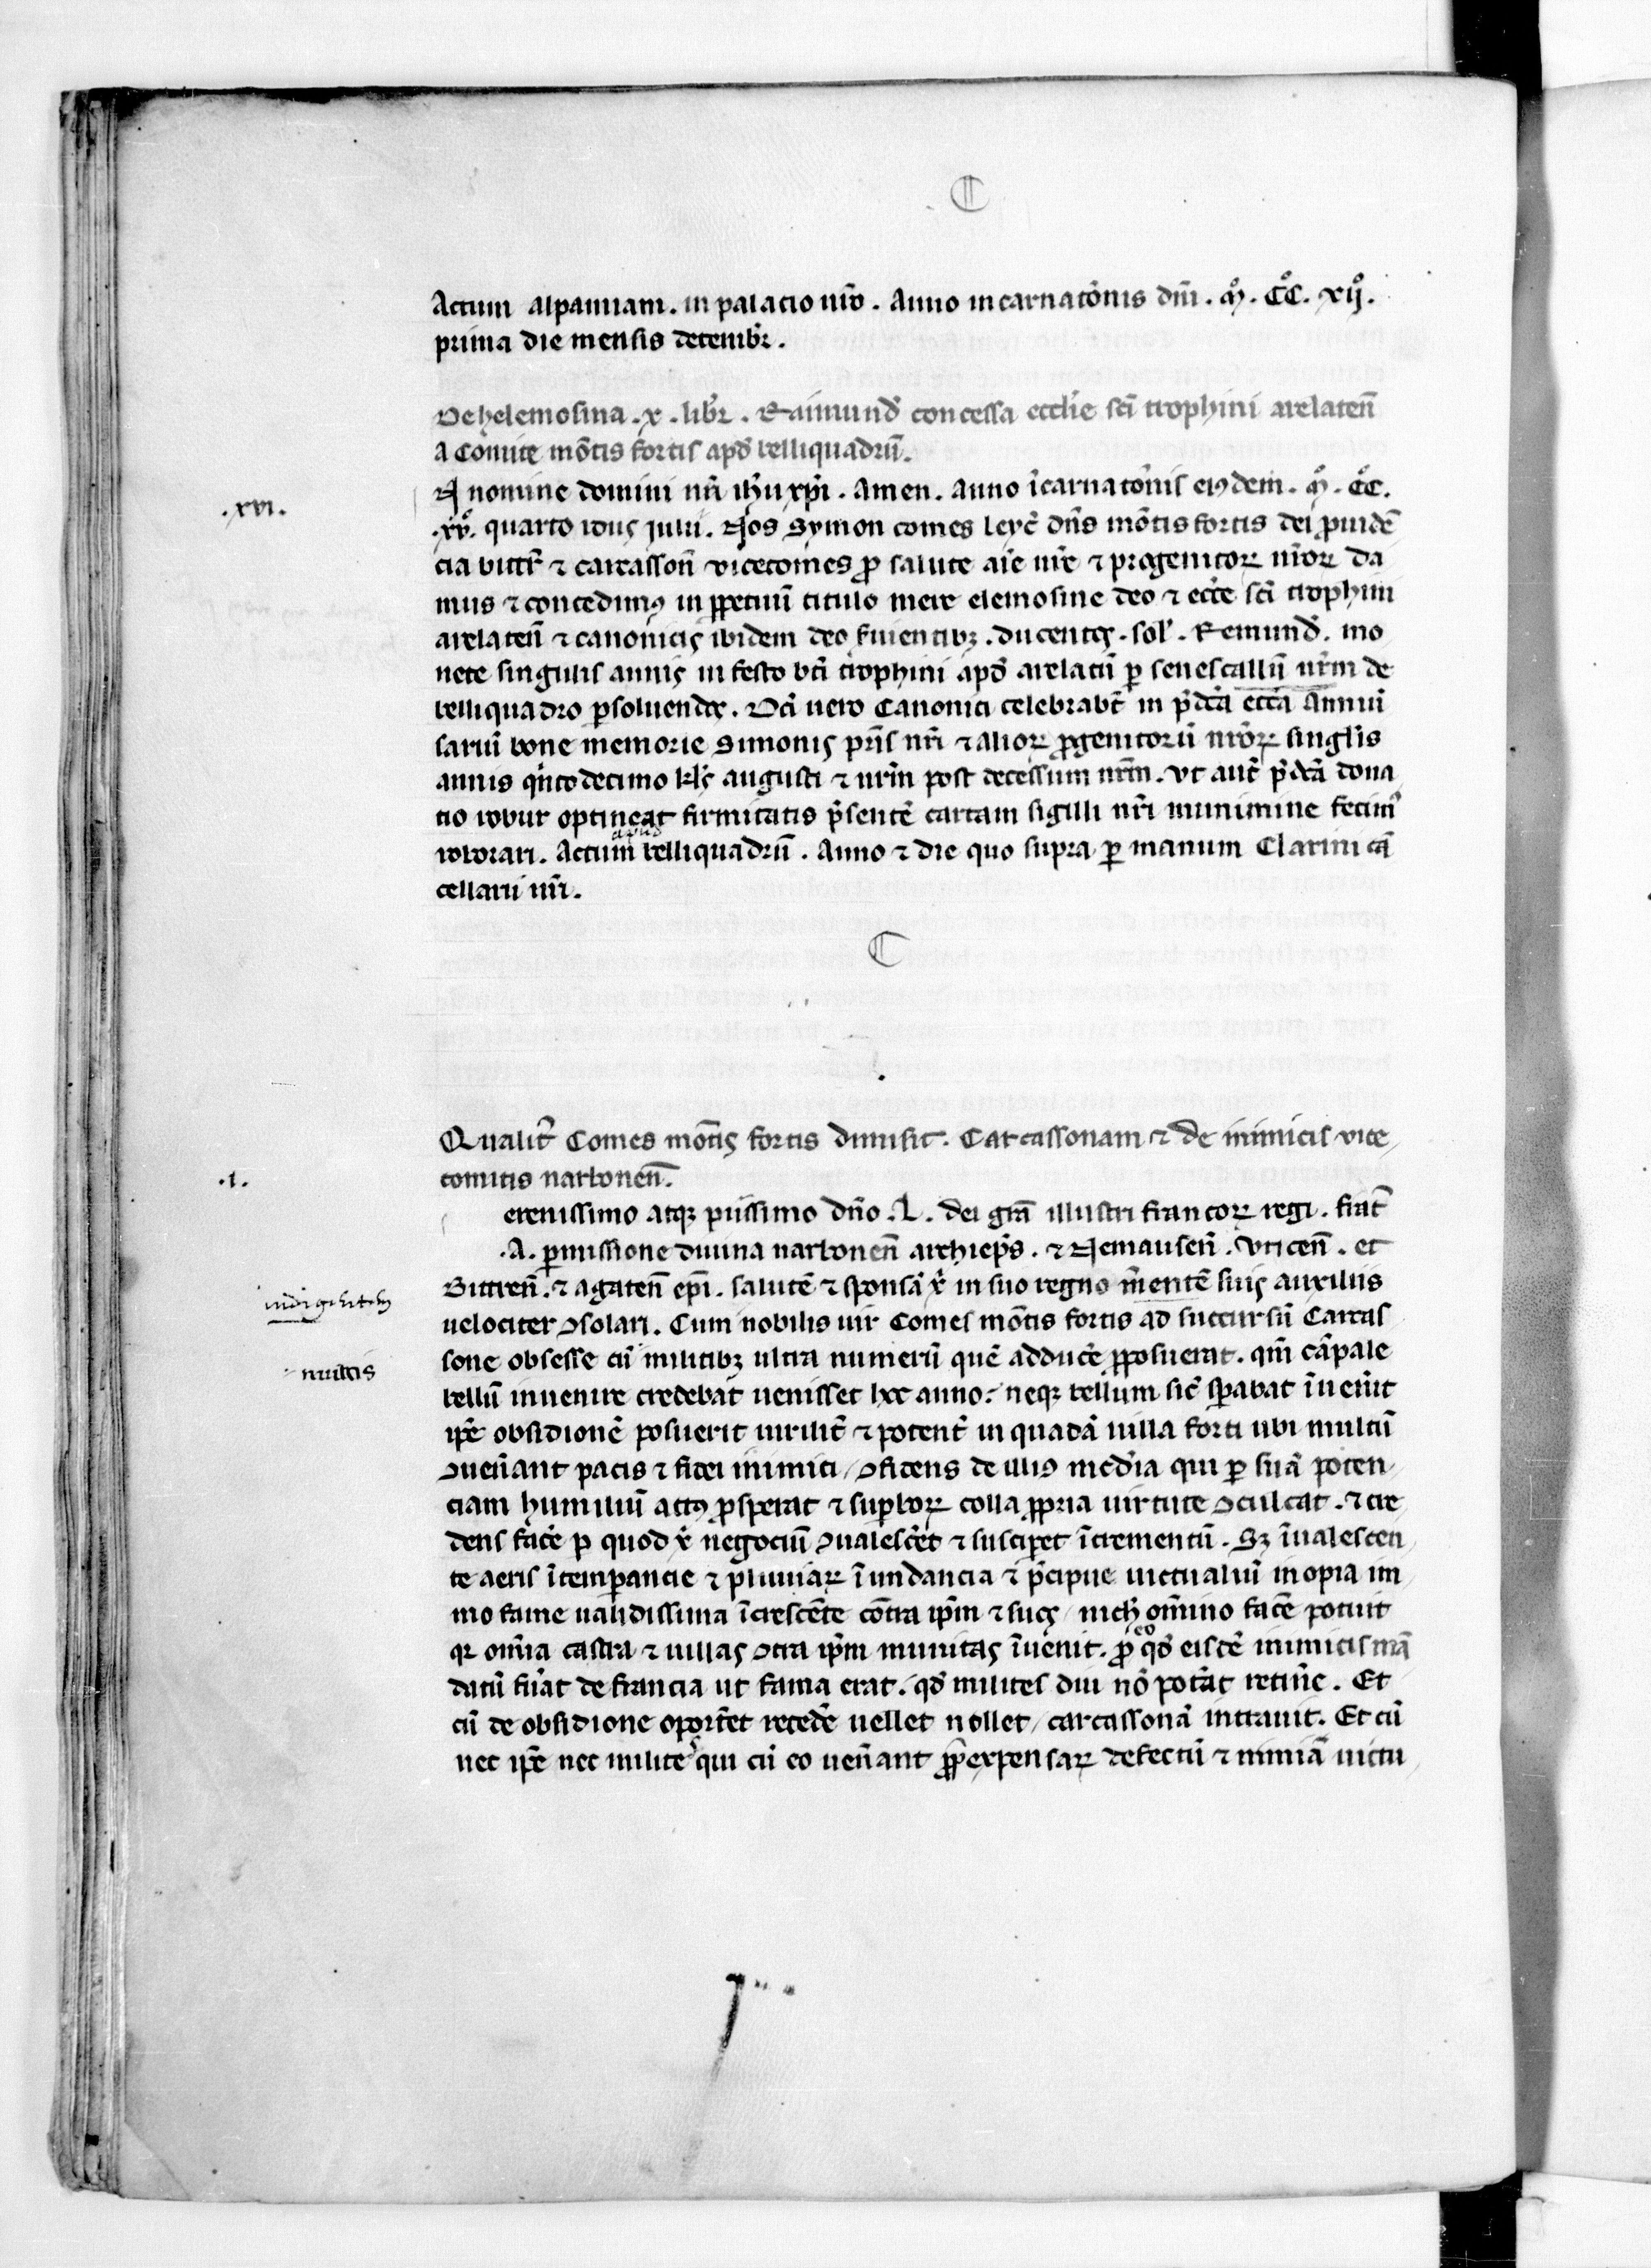 Actum alpanniam . in palacio nr̄o . Anno incarnatōnis dm̄ . mͦ . CͦC . xijͦ .
prima die mensis decembr̄ .
De helemosina . x . libr̄ . Raimund̄ concessa eccl̄ie sc̄i trophini arelaten̄
A Comite mōtis fortis apd̄ belliquadrū .
.xvi.
N nomine domini nr̄i ih̄u xp̄i . Amen . Anno īcarnatōnis eiꝰdem . mͦ . CͦC .
.xvͦ . quarto idus julii . Nos Symon comes leyc̄ dn̄s mōtis fortis dei p̄uidē
cia bitt̄ ⁊ carcasson̄ vicecomes ꝓ salute aīe nr̄e ⁊ progenitoꝝ nr̄oꝝ da
mus ⁊ concedimꝰ in ꝑpetuū titulo mere elemosine deo ⁊ ecc̄e sc̄i trophini
arelaten̄ ⁊ canonicis ibidem deo s̄uientibꝫ . ducentos . sol̄ . Remund̄ . mo
nete singulis annis in festo bt̄i trophini apd̄ arelatū ꝑ senescallū nr̄m de
belliquadro ꝑsoluendos . Dc̄i uero Canonici celebrabt̄ in p̄dc̄a ecc̄a Anniu̅
sariū bone memorie Simonis pr̄is nr̄i ⁊ alioꝝ ꝓgenitorū nr̄oꝝ singl̄is
annis qn̄to decimo kl̄s augusti ⁊ nr̄m post decessum nr̄m . Ut aut̄ p̄dc̄a dona
tio robur optineat firmitatis p̄sentē cartam sigilli nr̄i munimine fecimꝰ
roborari . Actum apud belliquadrū . Anno ⁊ die quo supra ꝑ manum Clarini cā
cellarii nr̄i .
Qualit̄ Comes mōtis fortis dimisit . Carcassonam ⁊ de inimicis vice
comitis narbonen̄ .
.i.
erenissimo atqꝫ piissimo dn̄o . L . dei gr̄a illustri francoꝝ regi . frat̄
. A . ꝑmissione diuina narbonen̄ archiep̄s . ⁊ Nemausen̄ . Uticen̄ . et
Bittren̄ . ⁊ agaten̄ ep̄i . salutē ⁊ sponsā xp̄i in suo regno m̄entē suis auxiliis
uelociter ꝯsolari . Cum nobilis uir Comes mōtis fortis ad succursū Carcas
sone obsesse cū militibꝫ ultra numerū quē adduc̄e ꝓposuerat . qm̄ cāpale
multis
bellū inuenire credebat uenisset hoc anno : neqꝫ bellum sic̄ sꝑabat īuen̄it
ip̄e obsidionē posuerit uirilit̄ ⁊ potent̄ in quadā uilla forti ubi multū
ꝯuen̄ant pacis ⁊ fidei inimici / ꝯfidens de illiꝰ med̄ia qui ꝑ suā poten
ciam humiliū actꝰ ꝓsperat ⁊ suꝑboꝝ colla ꝓpria uirtute ꝯculcat . ⁊ cre
dens fac̄e ꝑ quod xp̄i negociū ꝯualesc̄et ⁊ susciꝑet īcrementū . Sꝫ īualescen
te aeris ītemꝑancie ⁊ pluuiaꝝ īundancia ⁊ p̄cipue uictualiū inopia im
mo fame ualidissima īcrescēte cōtra ip̄m ⁊ suos / nich̄ om̄ino fac̄e potuit
qꝛ om̄ia castra ⁊ uillas ꝯtra ip̄m munitas īuenit . ꝓ eo qd̄ eisdē inimicis mā
datū fu̅at de francia ut fama erat . qd̄ milites diu nō pot̄at retin̄e . Et
cū de obsidione oport̄et reced̄e uellet nollet / carcassonā intrauit . Et cū
nec ip̄e nec milites qui cū eo uen̄ant ꝓpt̄ expensaꝝ defectū ⁊ nimiā uictu